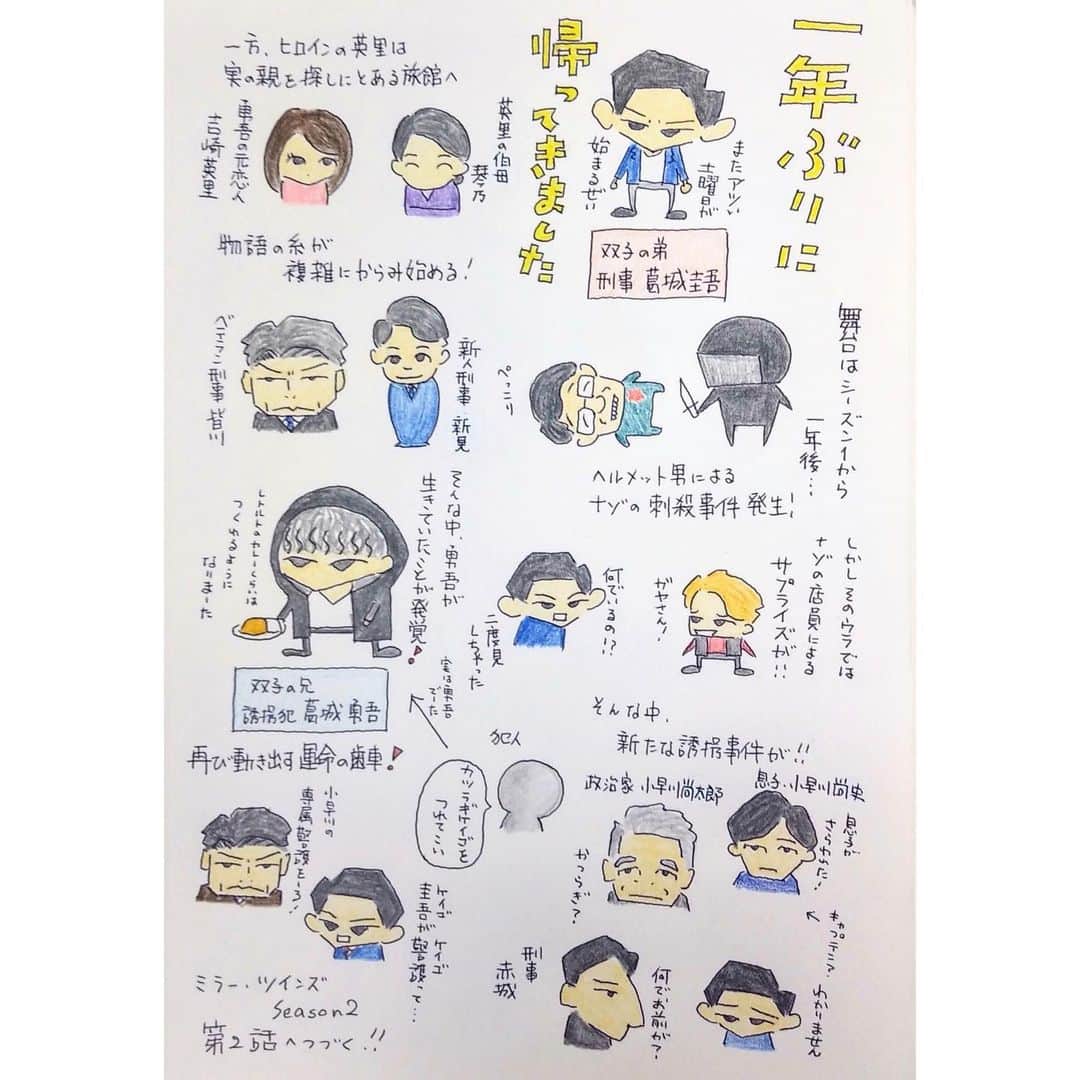 一年ぶりに
帰ってきました
またアツい
土曜日が
始まるぜい
双子の弟
刑事 葛城圭吾
舞台はシーズン1から
一年後…
ぺっこり
ヘルメット男による
ナゾの刺殺事件発生!
しかしそのウラでは
ナゾの店員による
サプライズが!!
ガヤさん!
何でいるの!?
二度見
しちゃった
そんな中、
新たな誘拐事件が!!
政治家 小早川尚太郎
息子 小早川尚史
息子が
さらわれた!
かつらぎ?
キャプテン?
わかりません
何でお前が?
刑事
赤城
犯人
カツラギケイゴを
つれてこい
一方、ヒロインの英里は
実の親を探しにとある旅館へ
英里の伯母
琴乃
勇吾の元恋人
吉崎英里
物語の糸が
複雑にからみ始める!
新人刑事 新見
ベテラン刑事 皆川
そんな中、勇吾が
生きていたことが発覚!
実は勇吾
でーた
レトルトのカレーくらいは
つくれるように
なりまーた
双子の兄
誘拐犯 葛城勇吾
再び動き出す運命の歯車!
小早川の
専属警護をしろ!
ケイゴ ケイゴ
圭吾が警護って…
ミラー・ツインズ
Season2
第2話へつづく!!